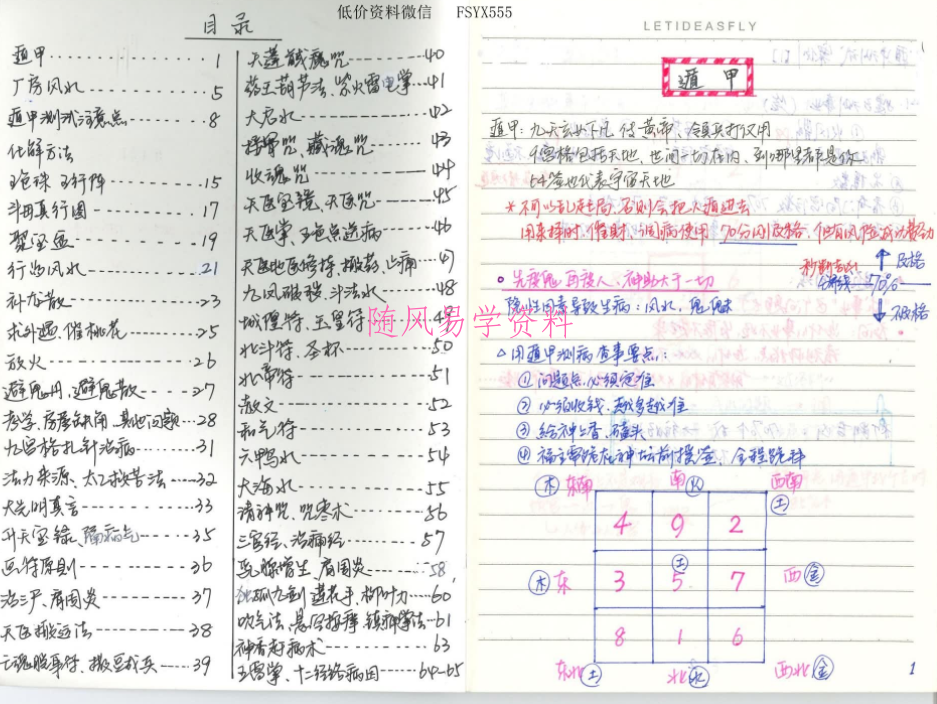 低价资料微信 FSYX555
目录
遁甲 1
厂房风水 5
遁甲测试注意点 8
化解方法
五色珠 五行阵 15
斗母真行图 17
聚宝盆 19
行当风水 21
补龙散 23
求外遇、催桃花 25
放火 26
避鬼丹、避鬼散 27
考学、房屋缺角、其他问题 28
九宫格扎针治病 31
法力来源、太乙救苦法 32
大光明真言 33
升天宝箓、隔病气 35
画符原则 36
治三尸、肩周炎 37
天医搬运法 38
七魂服事符、撒豆成兵 39
天蓬馘魔咒 40
药王葫芦法、紫火雷电掌 41
大启水 42
接骨咒、藏魂咒 43
收魂咒 44
天医宝镜、天医咒 45
天医掌、五色点送病 46
天医地医修持、撒药、止痛 47
九凤破秽、斗法水 48
城隍符、玉皇符 49
北斗符、圣杯 50
北帝符 51
散文 52
和气符 53
六鸭水 54
大海水 55
请神咒、咒枣术 56
三官经、治痛经 57
乳腺增生、肩周炎 58
独孤九剑、莲花手、柳叶刀 60
吹气法、悬空按摩、镇神掌法 61
神香起病术 63
五雷掌、十二经络病因 64-65
随风易学资料
LETIDEASFLY
遁甲
遁甲：九天玄女下凡，传黄帝 领兵打仗用
九宫格包括天地、世间一切在内，到哪里都是你
64签也代表宇宙天地
*不可以乱起局，否则会把人摇进去
用来择时、催财、治病使用 70分以及格，但有风险成功费力
及格
70%
不及格
先度鬼，再度人，神助大于一切
隐性因素导致生病：风水，鬼魅
△用遁甲测病查事要点：
①问题点，必须定准
②必须收钱，越多越准
③给神上香、磕头
④福主需跪在神坛前摸签，全程跪拜
木 东南 南 火 西南 土
4 9 2
木 东 3 5 土 7 西 金
8 1 6
东北 土 北 水 西北 金
1